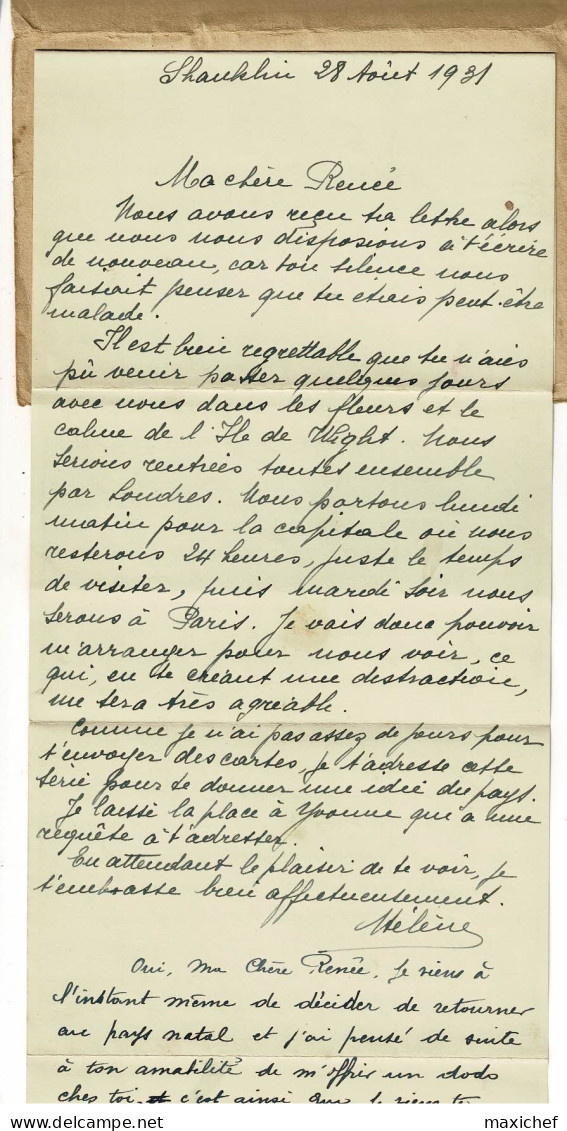 Shanklin 28 Août 1931
Ma chère Renée
Nous avons reçu ta lettre alors
que nous nous disposions à t'écrire
de nouveau, car ton silence nous
faisait penser que tu étais peut-être
malade.
Il est bien regrettable que tu n'aies
pû venir passer quelques jours
avec nous dans les fleurs et le
calme de l'Ile de Wight. Nous
serions rentrées toutes ensemble
par Londres. Nous partons lundi
matin pour la capitale où nous
resterons 24 heures, juste le temps
de visiter, puis mardi soir nous
serons à Paris. Je vais donc pouvoir
m'arranger pour nous voir, ce
qui, en te créant une distraction,
me sera très agréable.
Comme je n'ai pas assez de jours pour
t'envoyer des cartes, je t'adresse cette
série pour te donner une idée du pays.
Je laisse la place à Yvonne qui a une
requête à t'adresser.
En attendant le plaisir de te voir, je
t'embrasse bien affectueusement.
Hélène
Oui, ma Chère Renée, je viens à
l'instant même de décider de retourner
au pays natal et j'ai pensé de suite
à ton amabilité de m'offrir un dodo
chez toi, c'est ainsi que je viens te
maxichef